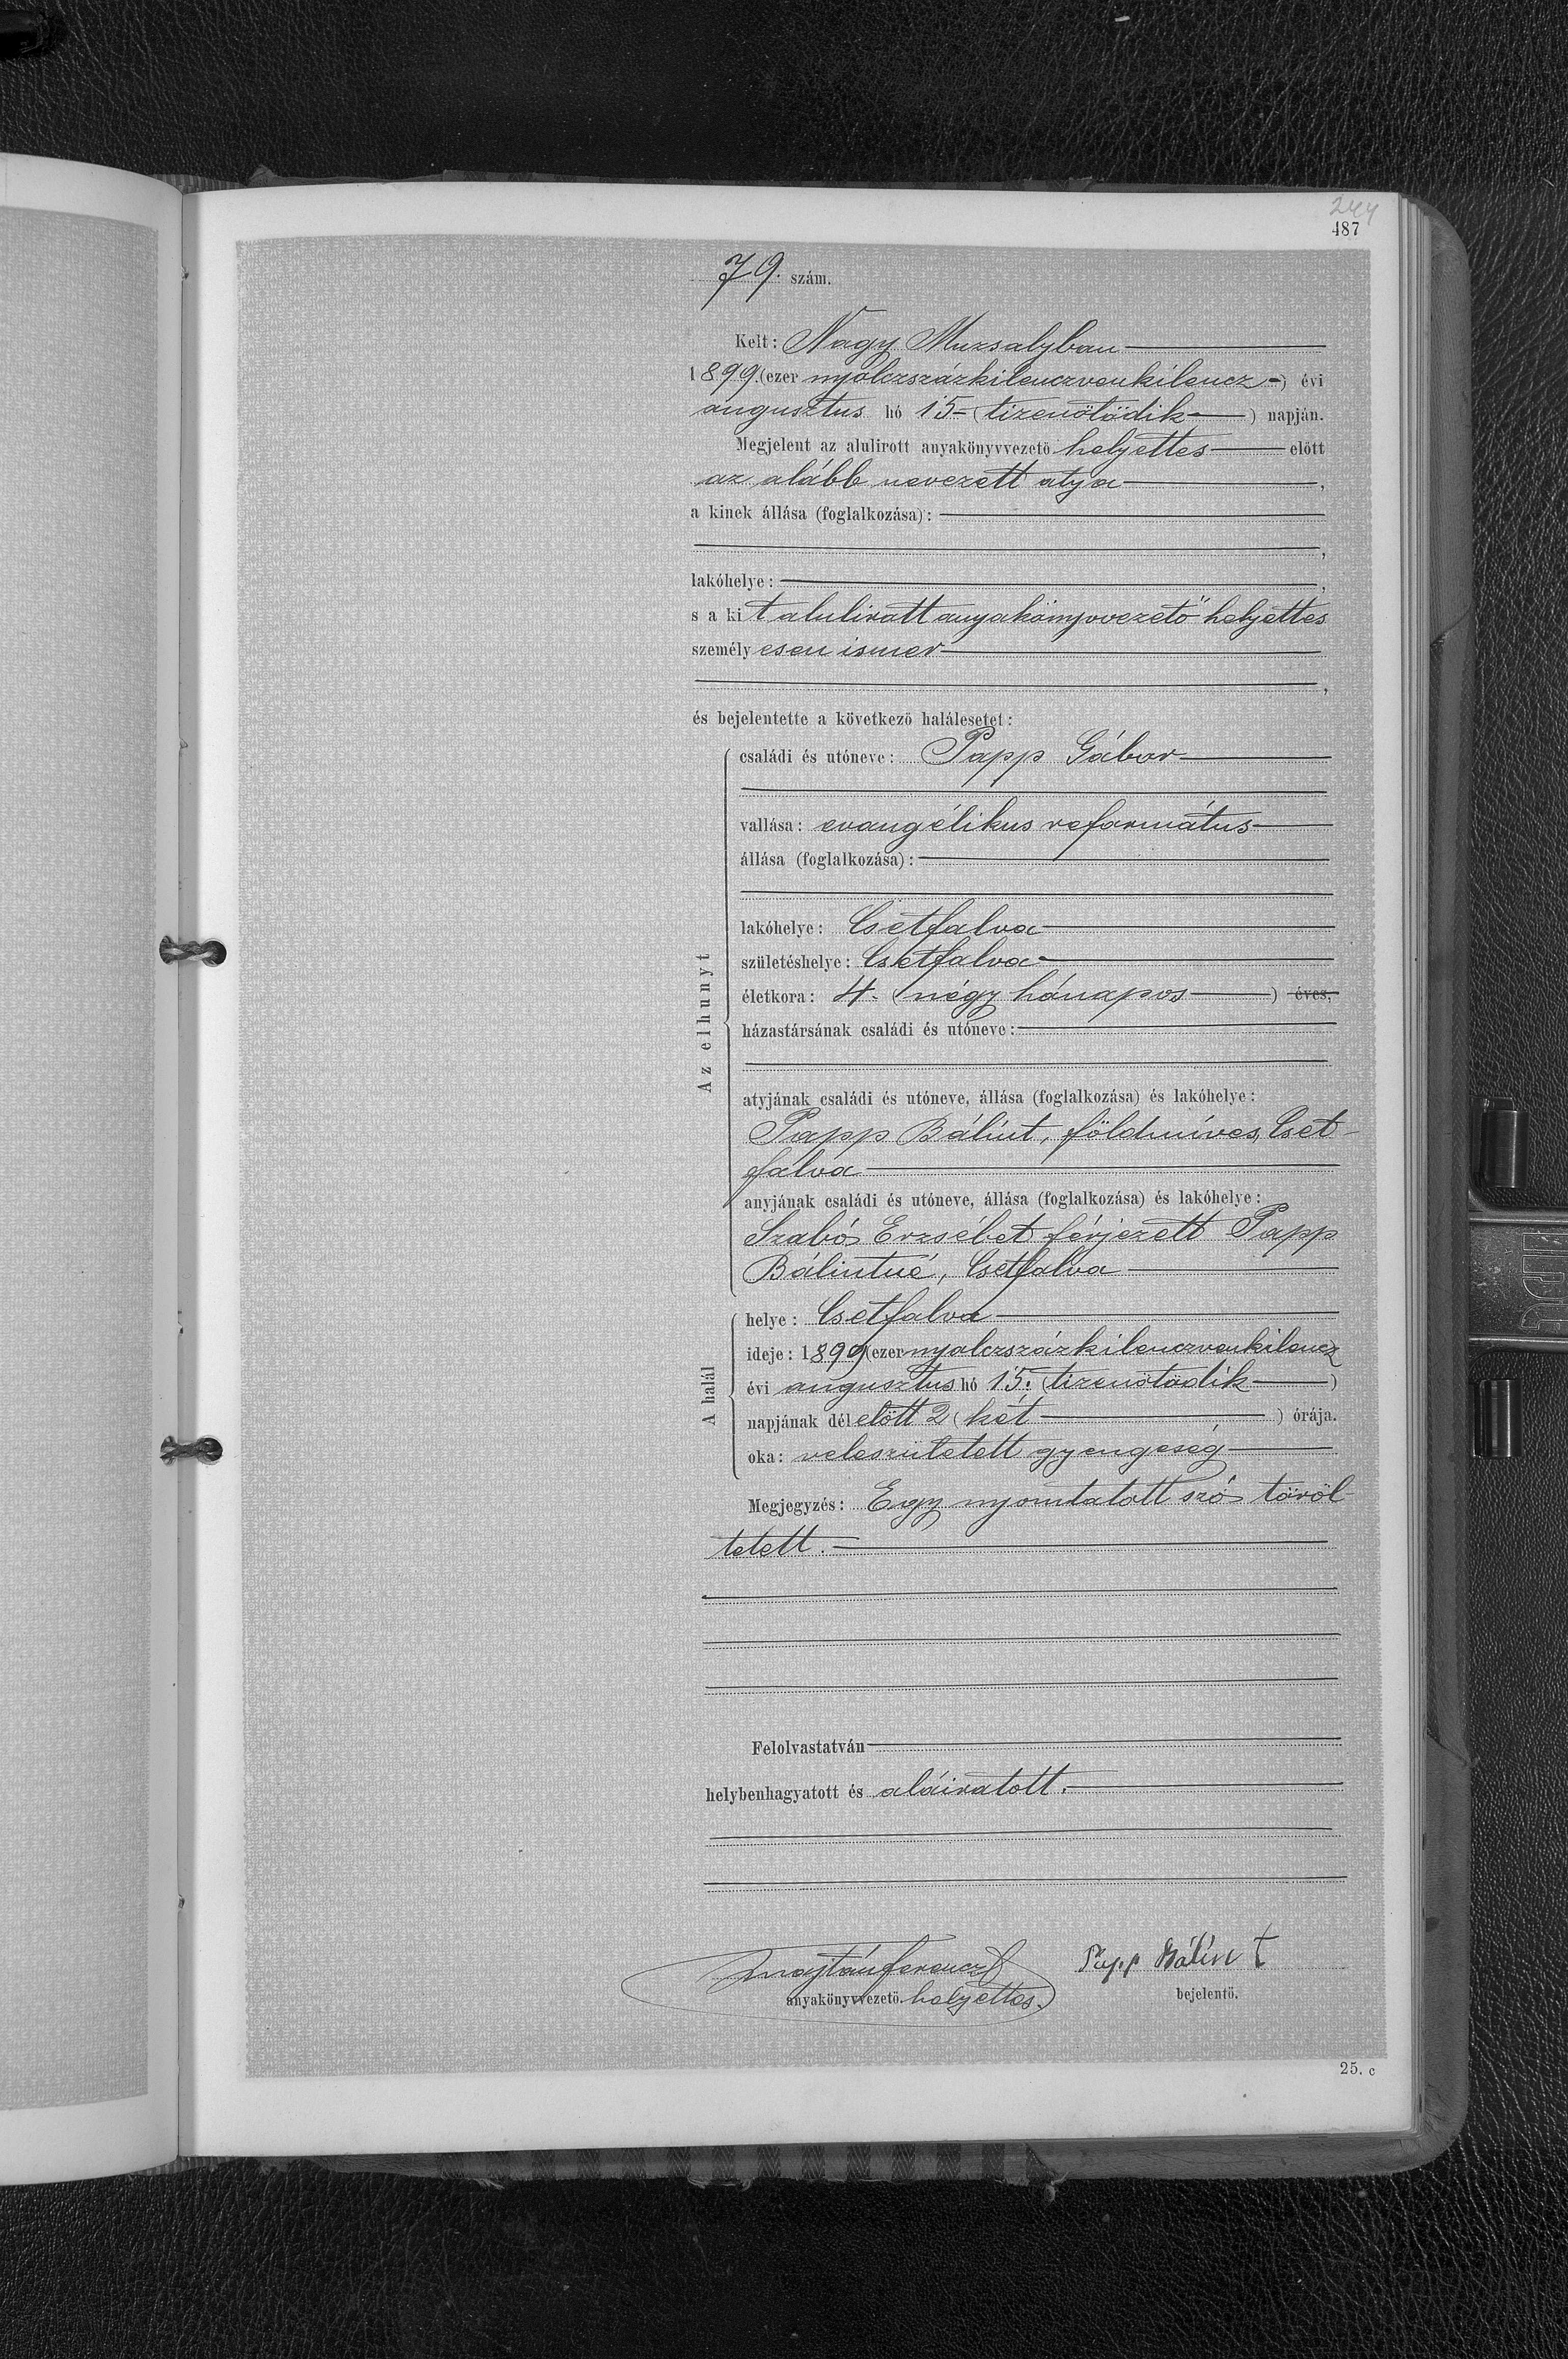 244
487
79. szám.
Kelt: Nagy Muzsalyban
1899. (ezer nyolczszázkilenczvenkilencz-) évi
augusztus hó 15- (tizenötödik) napján.
Megjelent az alulirott anyakönyvvezető helyettes előtt
az alább nevezett atya,
a kinek állása (foglalkozása):
,
lakóhelye: ,
s a kit alulirott anyakönyvvezető helyettes
személyesen ismer
,
és bejelentette a következő halálesetet:
Az elhunyt
családi és utóneve: Papp Gábor
vallása: evangélikus református
állása (foglalkozása):
lakóhelye: Csetfalva
születéshelye: Csetfalva
életkora: 4. (négy hónapos) éves,
házastársának családi és utóneve:
atyjának családi és utóneve, állása (foglalkozása) és lakóhelye:
Papp Bálint, földmíves, Cset-
falva
anyjának családi és utóneve, állása (foglalkozása) és lakóhelye:
Szabó Erzsébet férjezett Papp
Bálintné, Csetfalva
A halál
helye: Csetfalva
ideje: 1899 (ezer nyolczszázkilenczvenkilencz
évi augusztus hó 15. (tizenötödik)
napjának dél előtt 2 (két) órája.
oka: veleszületett gyengeség
Megjegyzés: Egy nyomtatott szó töröl-
tetett.
Felolvastatván
helybenhagyatott és aláiratott.
Majtán Ferencz Papp Bálint
anyakönyvvezető helyettes. bejelentő.
25. c